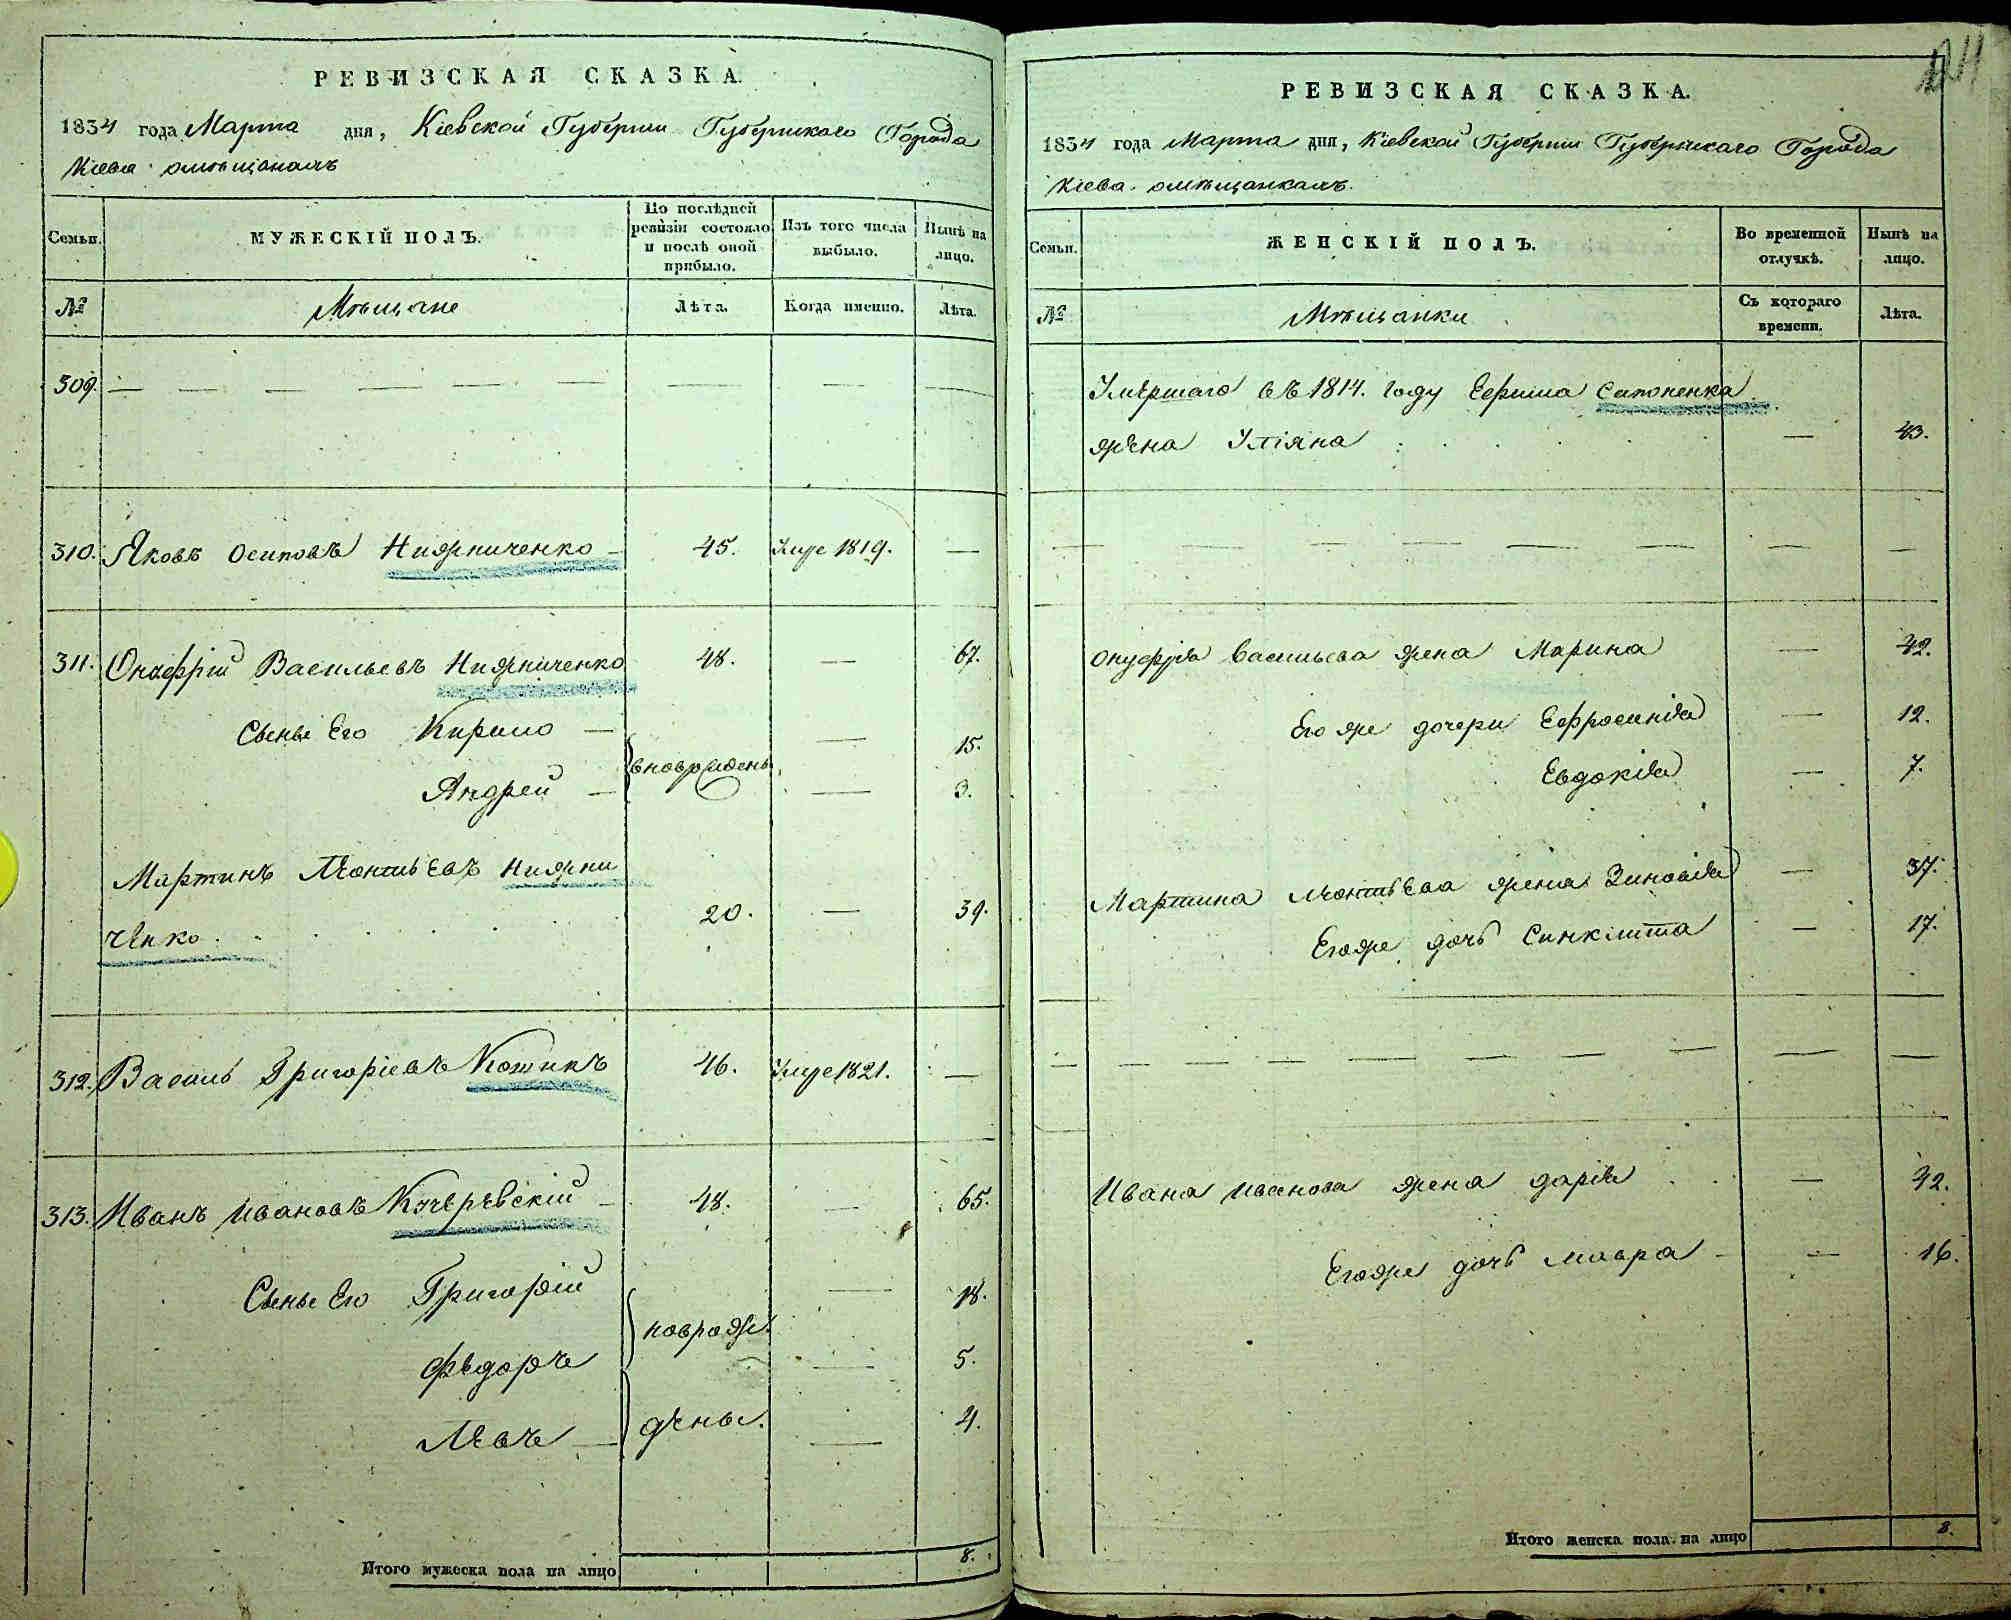 РЕВИЗСКАЯ СКАЗКА.
1834 года Марта дня, Кіевской Губерніи Губернскаго Города
Кіева омѣщанахъ
Семьи.
МУЖЕСКІЙ ПОЛЪ.
По послѣдней ревизіи состояло и послѣ оной прибыло.
Изъ того числа выбыло.
Нынѣ на лицо.
№
Мѣщане
Лѣта.
Когда именно.
Лѣта.
309.
310. Яковъ Осиповъ Нижниченко 45. Умре 1819.
311. Онуфрій Васильевъ Нижниченко 48. 67.
Сыны Его Кирило 15.
вновьрождены
Андрей 3.
Мартинъ Леонтьевъ Нижни
ченко 20. 39.
312. Василь Григоріевъ Котикъ 46. Умре 1821.
313. Иванъ Ивановъ Кучеревскій 48. 65.
Сыны Его Григорій 18.
новрож
Федоръ 5.
дены.
Левъ 4.
Итого мужеска пола на лицо 8.
РЕВИЗСКАЯ СКАЗКА.
1834 года Марта дня, Кіевской Губерніи Губернскаго Города
Кіева омѣщанкахъ.
Семьи.
ЖЕНСКІЙ ПОЛЪ.
Во временной отлучкѣ.
Нынѣ на лицо.
№
Мѣщанки
Съ котораго времени.
Лѣта.
Умершаго въ 1814. году Ефима Сапоненка
жена Уліяна 43.
Онуфрія Васильева жена Марина 42.
Его же дочери Ефросинія 12.
Евдокія 7.
Мартина Леонтьева жена Зиновія 37.
Егоже дочь Синклита 17.
Ивана Иванова жена Дарія 42.
Егоже дочь Мавра 16.
Итого женска пола на лицо 8.